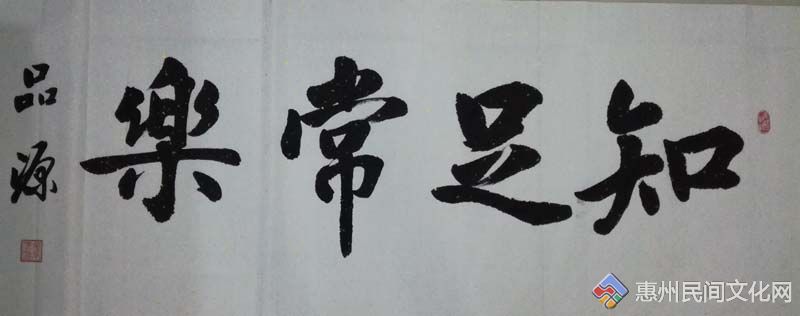 知足常樂
品源
惠州民间文化网